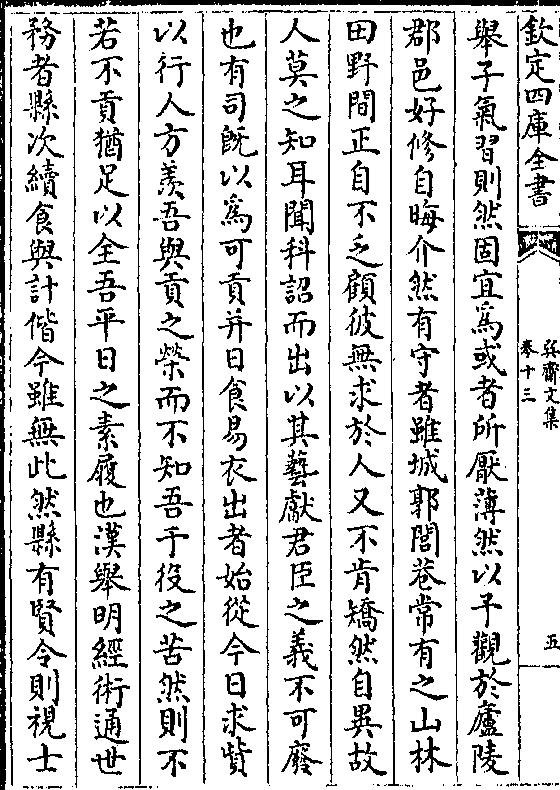 欽定四庫全書
巽齋文集
卷十三
五
舉子氣習則然固宜爲或者所厭薄然以予觀於廬陵
郡邑好修自晦介然有守者雖城郭閭巷常有之山林
田野間正自不乏顧彼無求於人又不肯矯然自異故
人莫之知耳聞科詔而出以其藝獻君臣之義不可廢
也有司既以爲可貢并日食易衣出者始從今日求貲
以行人方羨吾與貢之榮而不知吾干役之苦然則不
若不貢猶足以全吾平日之素履也漢舉明經術通世
務者縣次續食與計偕今雖無此然縣有賢令則視士